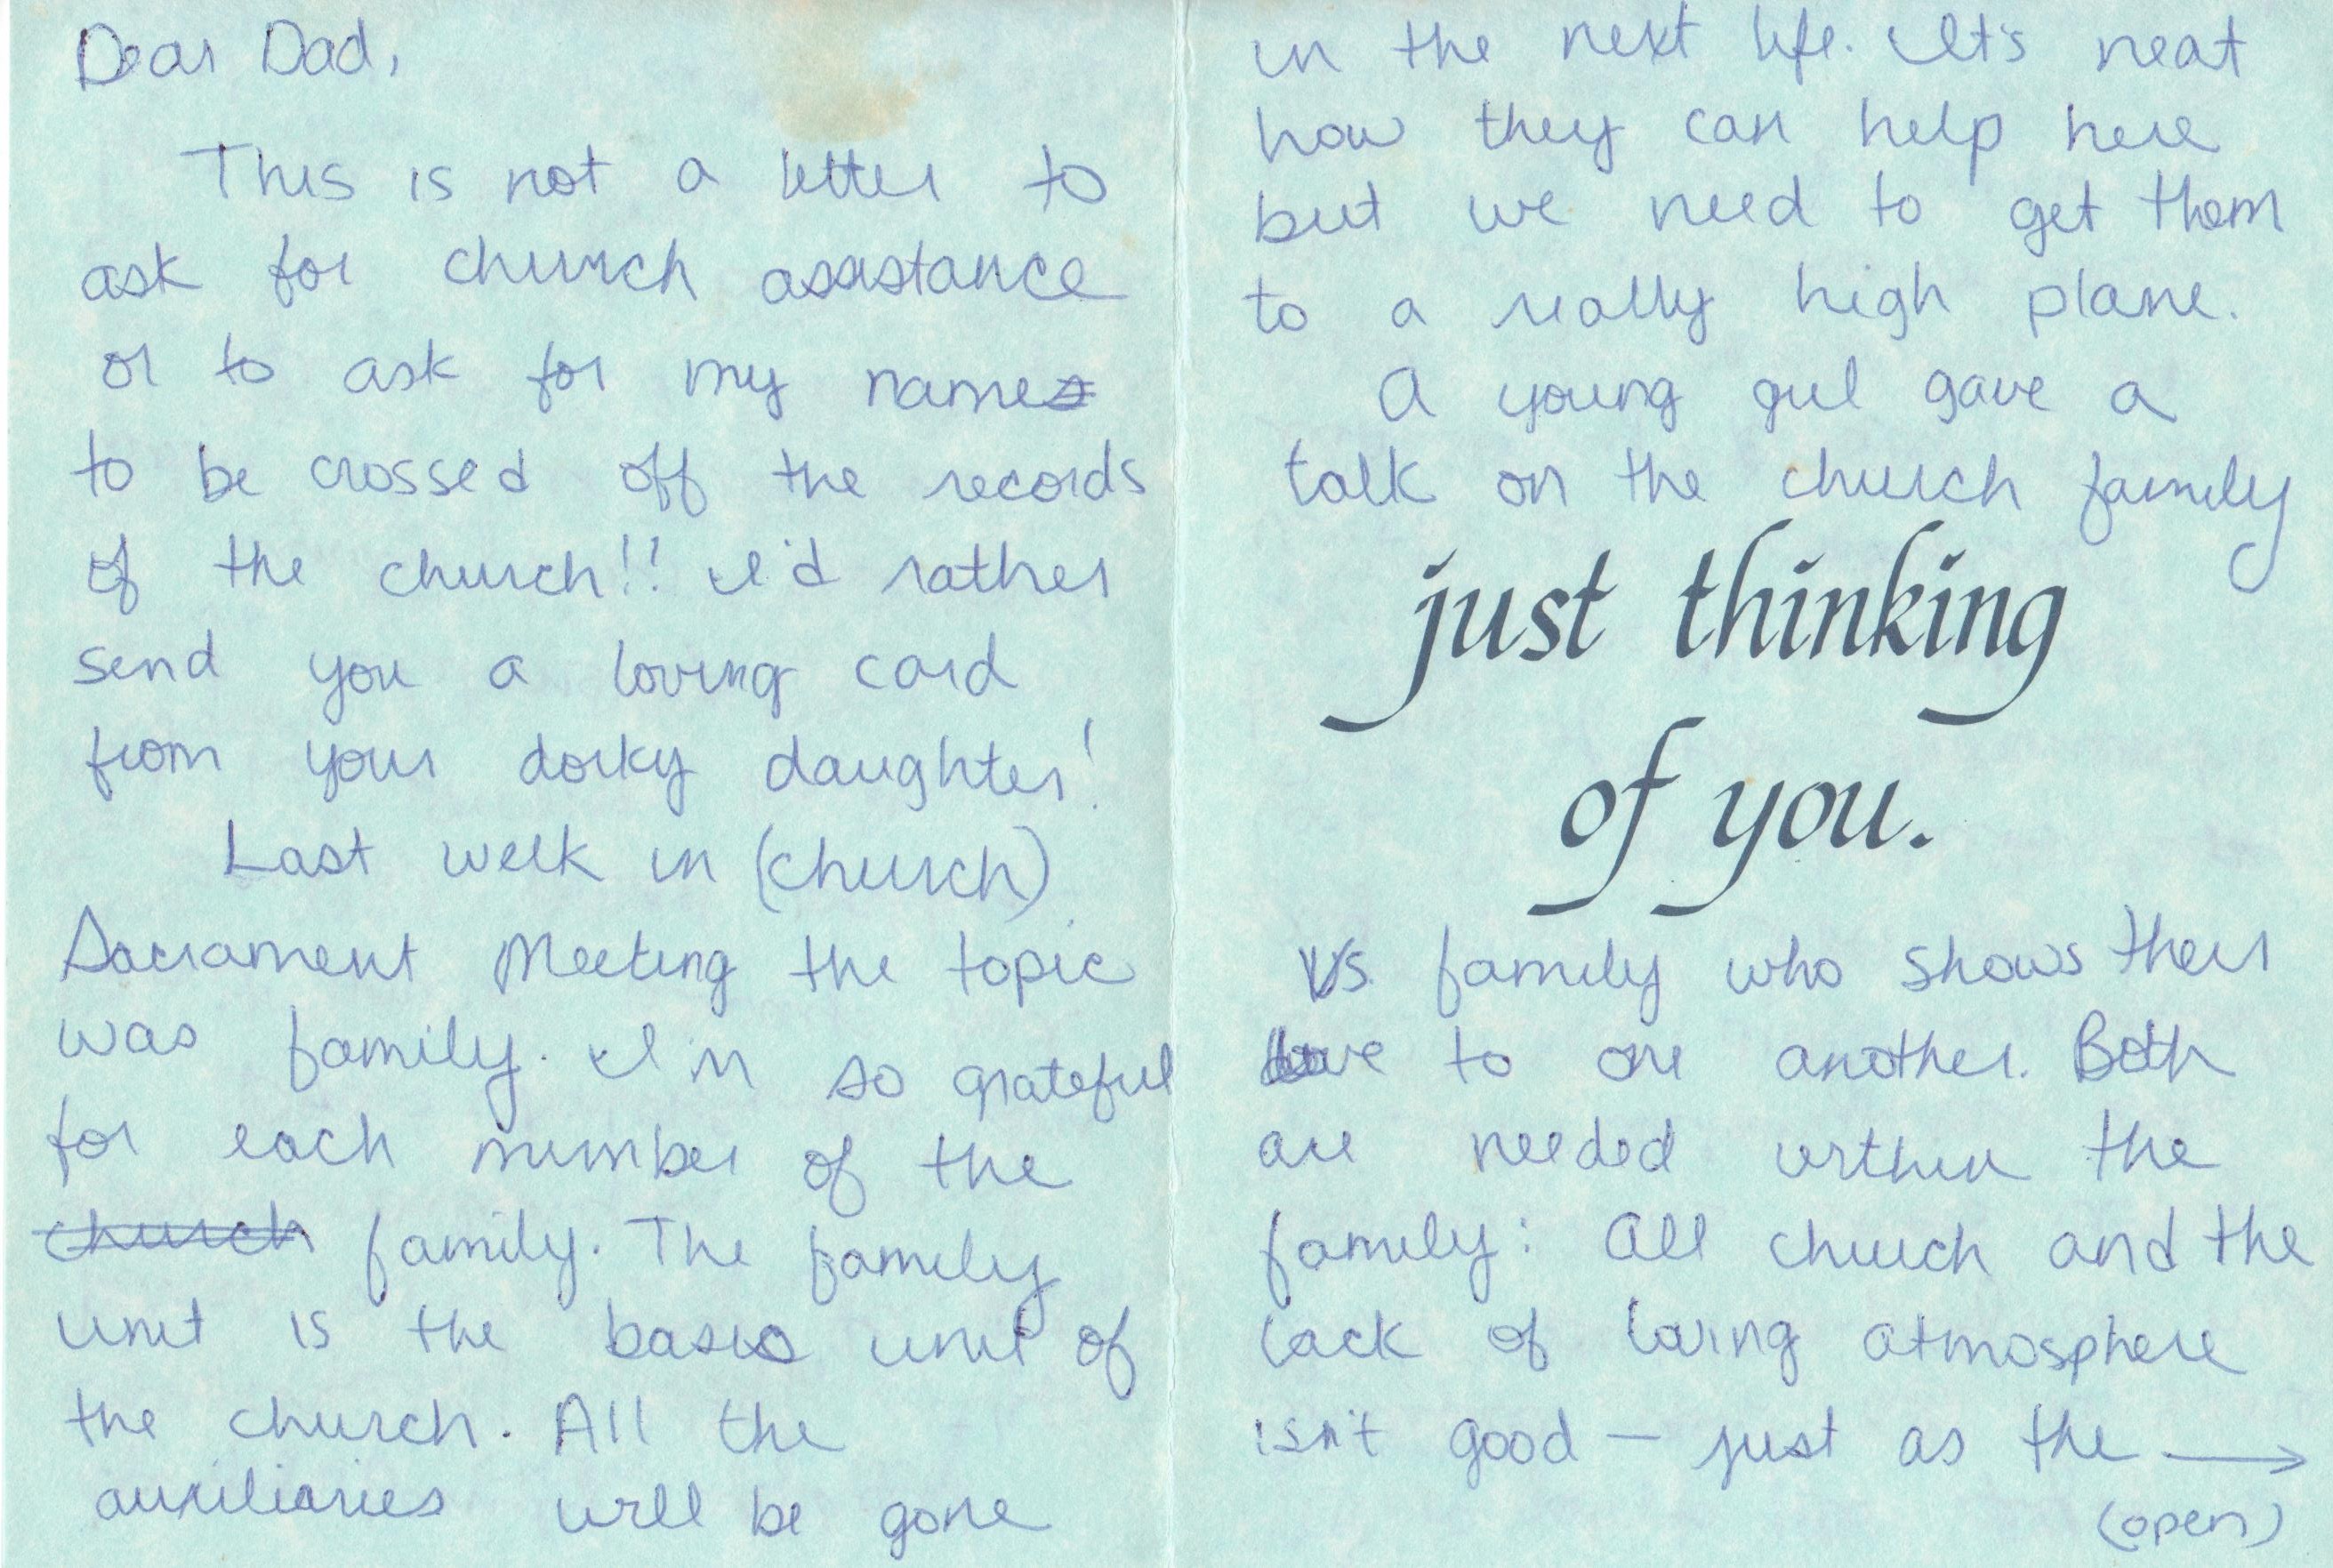 Dear Dad,
This is not a letter to
ask for church assistance
or to ask for my name
to be crossed off the records
of the church!! I'd rather
send you a loving card
from your dorky daughter!
Last week in (church)
Sacrament Meeting the topic
was family. I'm so grateful
for each member of the
church family. The family
unit is the basic unit of
the church. All the
auxiliaries will be gone
in the next life. It's neat
how they can help here
but we need to get them
to a really high plane.
A young girl gave a
talk on the church family
just thinking
of you.
vs. family who shows their
love to one another. Both
are needed within the
family: All church and the
lack of loving atmosphere
isn't good — just as the →
(open)